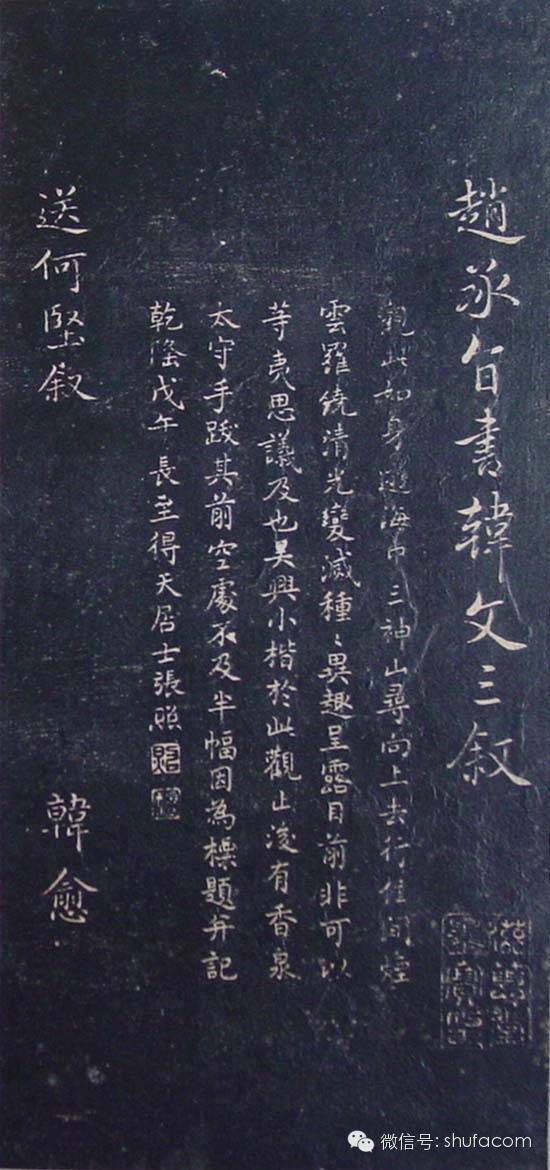 趙承旨書韓文三叙
觀此如身遊海中三神山尋向上去行住間煙
雲羅繞清光變滅種〻異趣呈露目前非可以
等夷思議及也吳興小楷於此觀止後有香泉
太守手跋其前空處不及半幅因為標題并記
乾隆戊午長至得天居士張照
送何堅叙 韓愈
微信号: shufacom